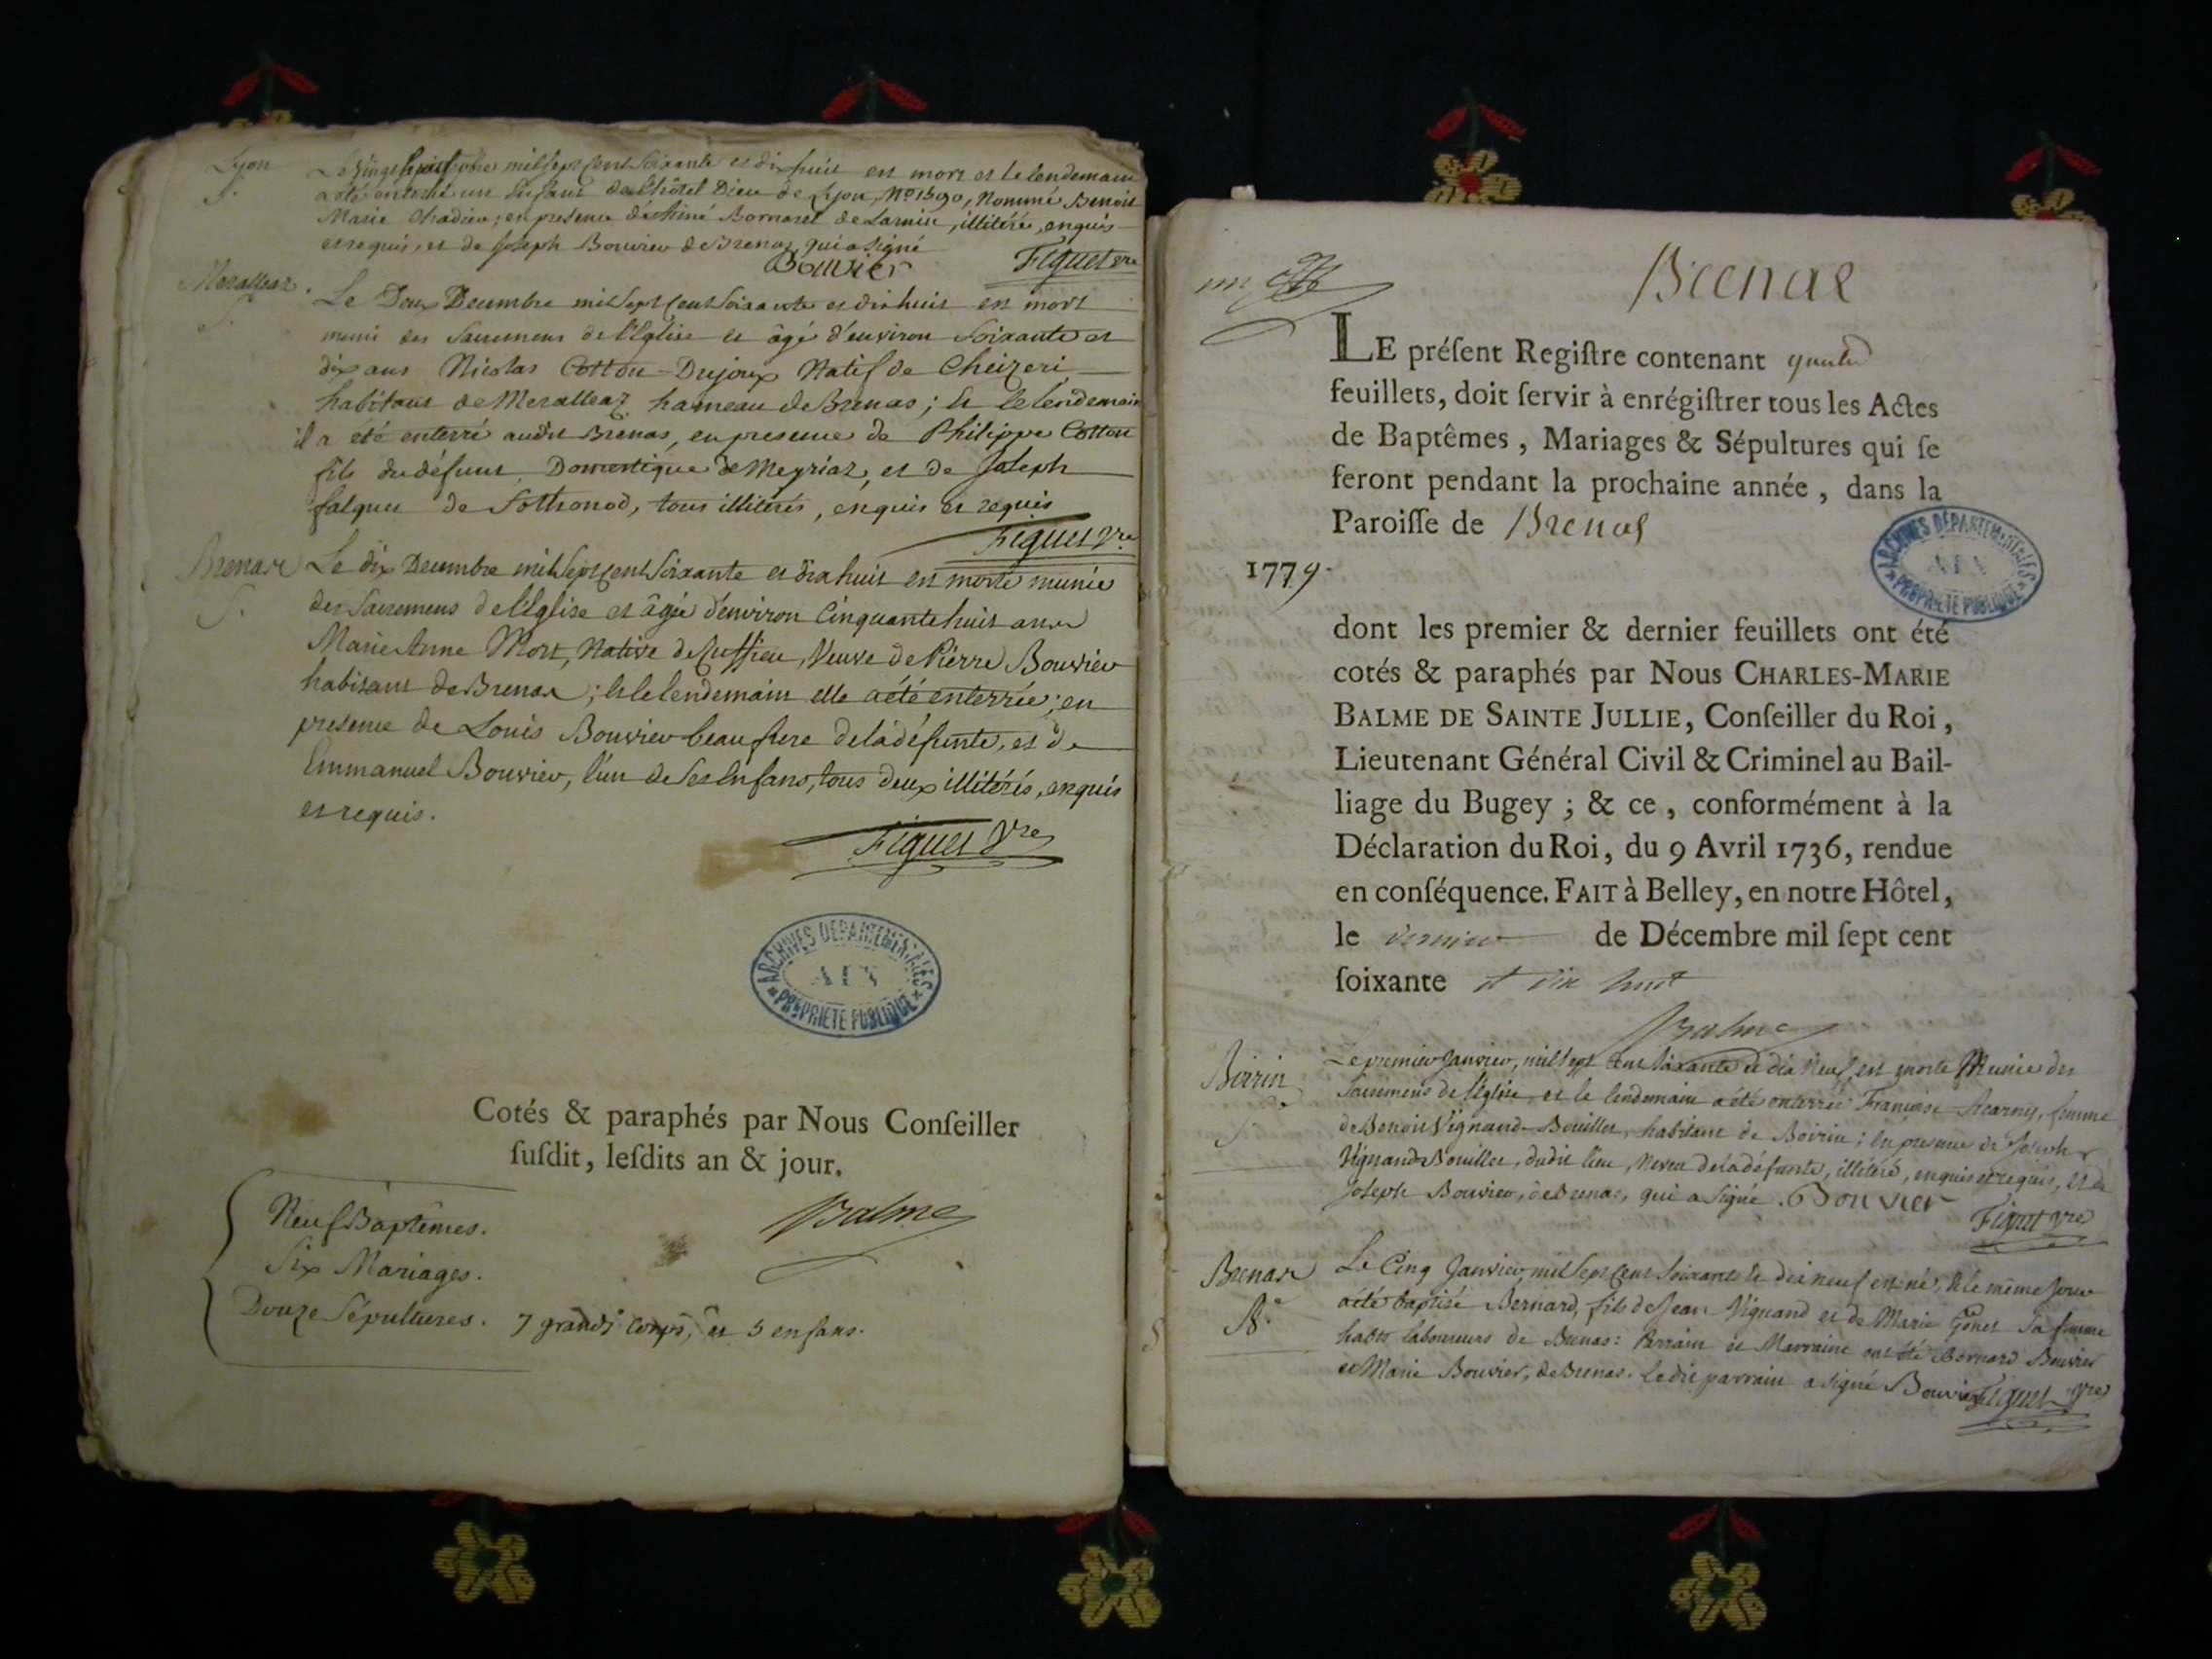 Lyon
S.
mil sept cent soixante et dix huit est mort et le lendemain
a été enterré un Enfant de l'hôtel Dieu de Lyon, No 1590, Nommé Benoit
Marie ; en presence de Bornarel de Larnin, illitéré, enquis
et requis, et de Joseph Bouvier de Brenaz, qui a signé
Bouvier Figuet vre
Meralleaz.
S.
Le Deux Decembre mil sept cent soixante et dix huit est mort
muni des Sacremens de l'Eglise et âgé d'environ Soixante et
dix ans Nicolas Cotton-Dujoux Natif de Cheizeri
habitant de Meralleaz hameau de Brenas ; et le lendemain
il a été enterré audit Brenas, en presence de Philippe Cotton
fils du défunt, Domestique de Meyriaz, et de Joseph
falquet de Sothonod, tous illiterés, enquis et requis
Figuet Vre
Brenaz
S.
Le dix Decembre mil Sept cent Soixante et dix huit est morte munie
des Sacremens de l'Eglise et âgée d'environ Cinquante huit ans
Marie Anne Mort, Native de Ruffieu, Veuve de Pierre Bouvier
habitant de Brenaz ; et le lendemain elle a été enterrée ; en
presence de Louis Bouvier beau frere de la défunte, et de
Emmanuel Bouvier, l'un de ses Enfans, tous deux illitérés, enquis
et requis.
Figuet Vre
ARCHIVES DÉPARTEMENTALES
AIN
PROPRIÉTÉ PUBLIQUE
Cotés & paraphés par Nous Conſeiller
ſuſdit, leſdits an & jour.
Balme
Neuf Baptêmes.
Six Mariages.
Douze Sépultures. 7 grands corps, et 5 enfans.
Brenaz
LE préſent Regiſtre contenant
feuillets, doit ſervir à enrégiſtrer tous les Actes
de Baptêmes, Mariages & Sépultures qui ſe
feront pendant la prochaine année, dans la
Paroiſſe de Brenas
1779.
ARCHIVES DÉPARTEMENTALES
AIN
PROPRIÉTÉ PUBLIQUE
dont les premier & dernier feuillets ont été
cotés & paraphés par Nous CHARLES-MARIE
BALME DE SAINTE JULLIE, Conſeiller du Roi,
Lieutenant Général Civil & Criminel au Bail-
liage du Bugey ; & ce, conformément à la
Déclaration du Roi, du 9 Avril 1736, rendue
en conſéquence. FAIT à Belley, en notre Hôtel,
le dernier de Décembre mil ſept cent
ſoixante et dix huit
Balme
Boirin
S.
Le premier Janvier, mil sept cent soixante et dix neuf, est morte Munie des
Sacremens de l'Eglise et le lendemain a été enterrée Françoise , femme
de Benoit Vignand-Bouillet, habitant de Boirin ; En presence de Joseph
Vignand-Bouillet, dudit lieu, Neveu de la défunte, illitéré, enquis et requis, et de
Joseph Bouvier, de Brenas, qui a Signé. Bouvier
Figuet vre
Brenaz
B.
Le Cinq Janvier, mil Sept Cent Soixante et dix neuf est né, et le même jour
a été baptisé Bernard, fils de Jean Vignand et de Marie Gonet Sa femme
habts laboureurs de Brenas : Parrain et Marraine ont été Bernard Bouvier
et Marie Bouvier, de Brenas. Ledit parrain a signé Bouvier Figuet Vre